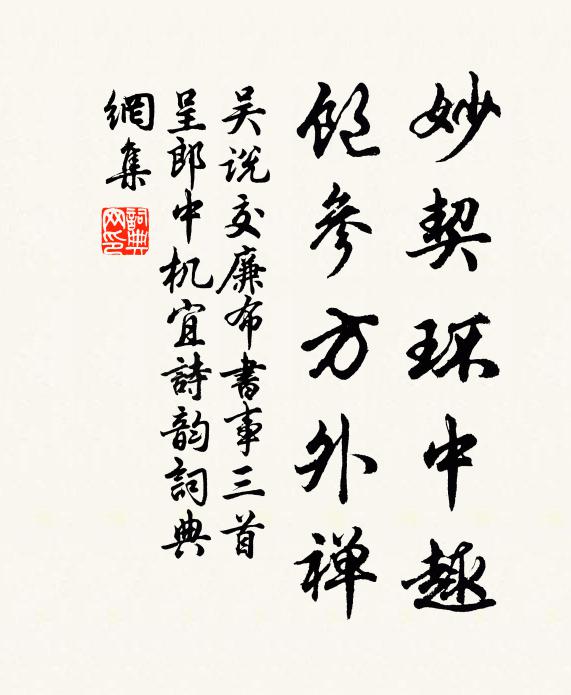 妙契环中趣
飽參方外禅
吴说交廉布書事三首
呈郎中机宜詩韵詞典
網集
詞典
网印